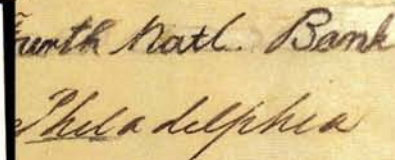 Fourth Natl. Bank
Philadelphia